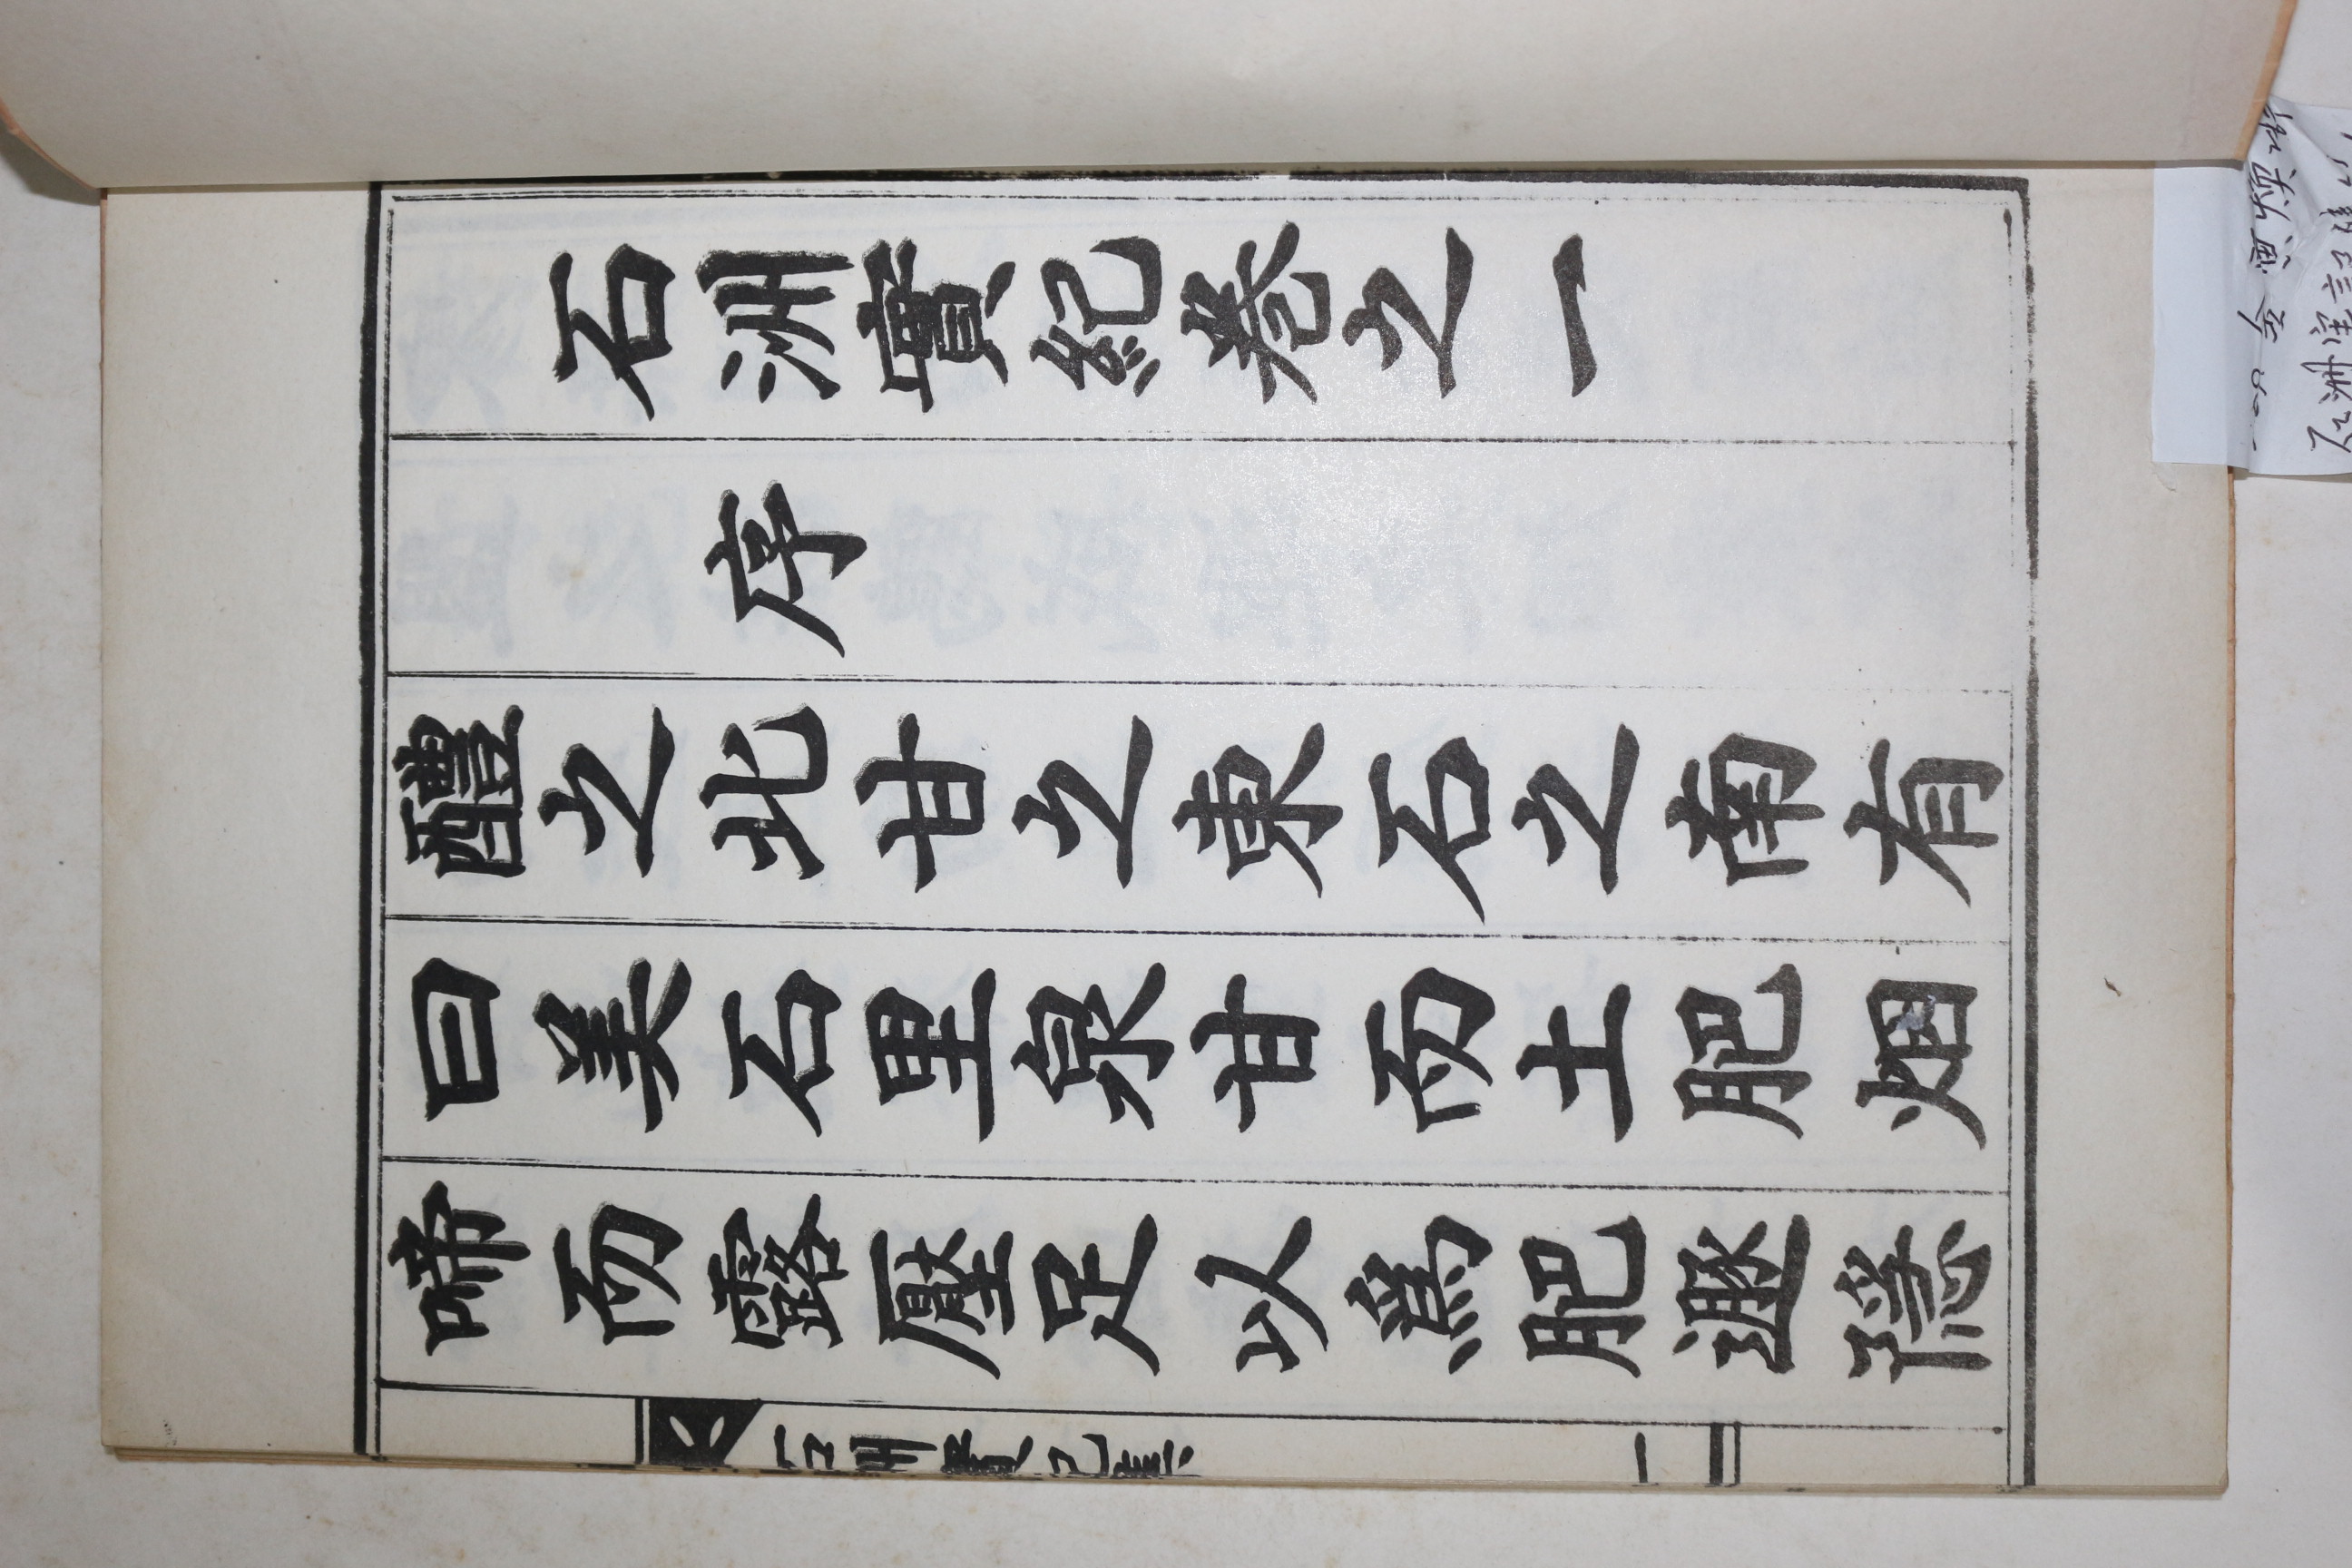 石洲實紀卷之一
序
醴之北甘之東石之南有
曰美石里泉甘而土肥烟
啼而露壓足以爲肥遯隱
石洲實紀集
一